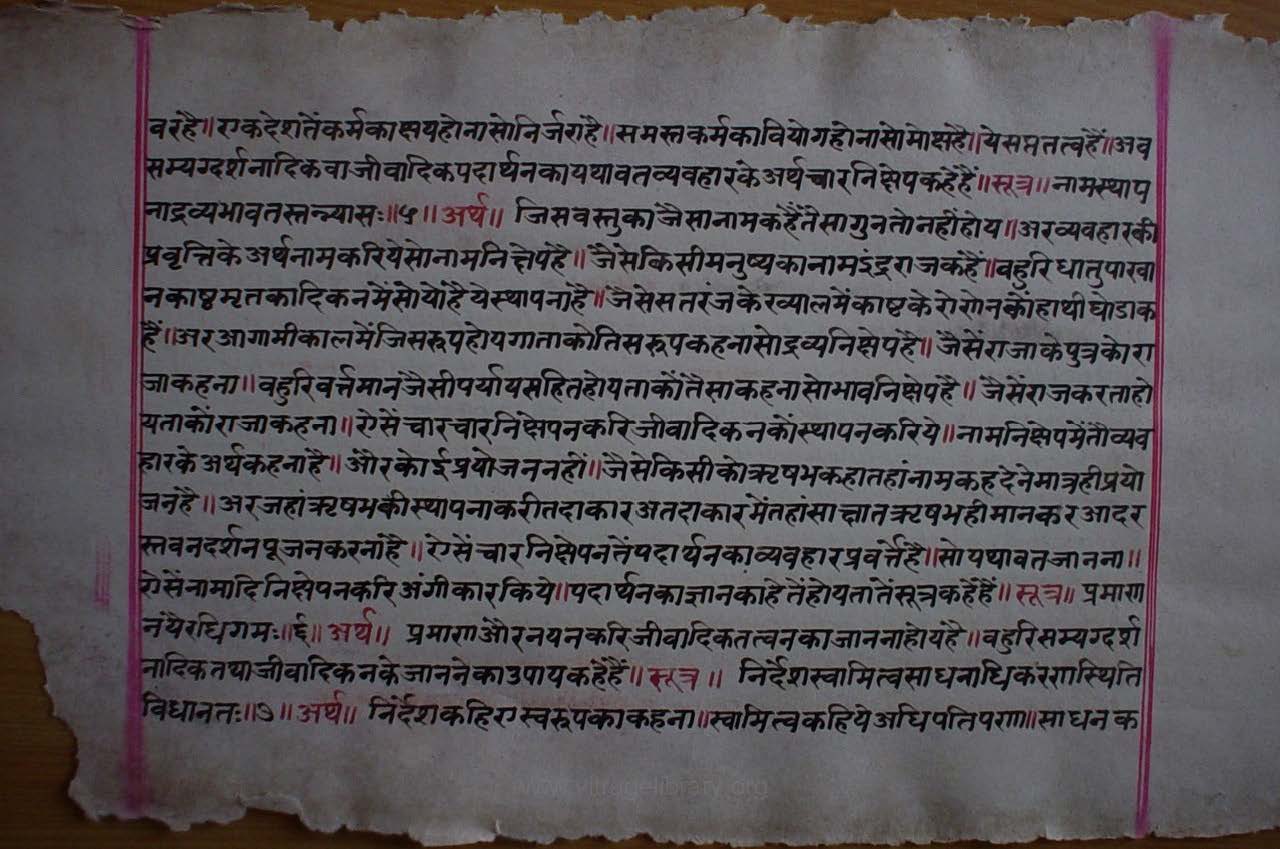 वरहै॥एकदेशतेंकर्मकाक्षयहोनासोनिर्जराहै॥समस्तकर्मकावियोगहोनासोमोक्षहै॥येसप्ततत्वहैं॥अव
सम्यग्दर्शनादिकवाजीवादिकपदार्थनकायथावतव्यवहारकेअर्थचारनिक्षेपकहेंहैं॥सूत्र॥नामस्थाप
नाद्रव्यभावतस्तन्न्यासः॥५॥अर्थ॥ जिसवस्तुकाजैसानामकहैंतैसागुनतोनहींहोय॥अरव्यवहारकी
प्रवृत्तिकेअर्थनामकरियेसोनामनिक्षेपहै॥जैसेकिसीमनुष्यकानामइंद्रराजकहैं॥वहुरिधातुपाखा
नकाष्ठमृतकादिकनमेंसोयोहैयेस्थापनाहै॥जैसेसतरंजकेख्यालमेंकाष्टकेरोरोनकोंहाथीघोडाक
हैं॥अरआगामीकालमेंजिसरूपहोयगाताकोतिसरूपकहनासोद्रव्यनिक्षेपहै॥जैसेंराजाकेपुत्रकोरा
जाकहना॥वहुरिवर्त्तमानजैसीपर्यायसहितहोयताकोंतैसाकहनासोभावनिक्षेपहै॥जैसेंराजकरताहो
यताकोंराजाकहना॥ऐसेंचारचारनिक्षेपनकरिजीवादिकनकोंस्थापनकरिये॥नामनिक्षेपमेंतौव्यव
हारकेअर्थकहनाहै॥औरकोईप्रयोजननहीं॥जैसेकिसीकोऋषभकहातहांनामकहदेनेमात्रहीप्रयो
जनहै॥अरजहांऋषभकीस्थापनाकरीतदाकारअतदाकारमेंतहांसाक्षातऋषभहीमानकरआदर
स्तवनदर्शनपूजनकरनाहै॥ऐसेंचारनिक्षेपनतेंपदार्थनकाव्यवहारप्रवर्त्तेहै॥सोयथावतजानना॥
ऐसेंनामादिनिक्षेपनकरिअंगीकारकिये॥पदार्थनकाज्ञानकाहेतेंहोयतातेंसूत्रकहैंहैं॥सूत्र॥ प्रमाण
नयैरधिगमः॥६॥अर्थ॥ प्रमाणऔरनयनकरिजीवादिकतत्वनकाजाननाहोयहै॥वहुरिसम्यग्दर्श
नादिकतथाजीवादिकनकेजाननेकाउपायकहेंहैं॥सूत्र॥ निर्देशस्वामित्वसाधनाधिकरणस्थिति
विधानतः॥७॥अर्थ॥ निर्देशकहिएस्वरूपकाकहना॥स्वामित्वकहियेअधिपतिपणा॥साधनक
www.vitragelibrary.org